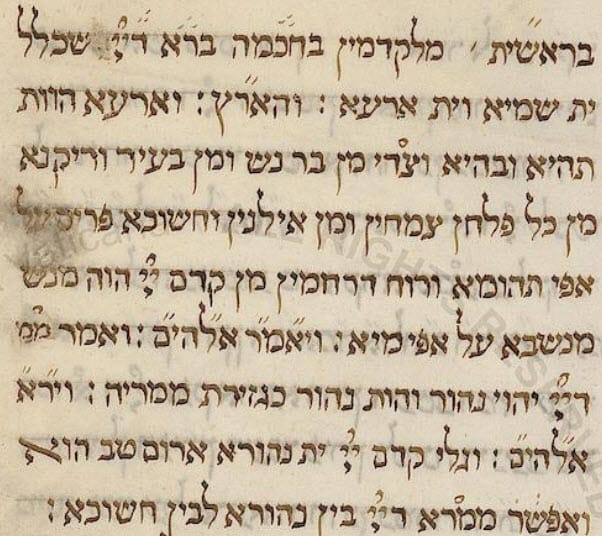 בראשית מלקדמין בחכמה ברא דייי שכלל
ית שמיא וית ארעא : והארץ : וארעא הוות
תהיא ובהיא וצדי מן בר נש ומן בעיר וריקנא
מן כל פלחן צמחין ומן אילנין וחשוכא פריס על
אפי תהומא ורוח דרחמין מן קדם ייי הוה מנש
מנשבא על אפי מיא : ויאמר אלהים : ואמר ממ
דייי יהוי נהור והות נהור כגזירת ממריה : וירא
אלהים : וגלי קדם ייי ית נהורא ארום טב הוא
ואפשר ממרא דייי בין נהורא לבין חשוכא :
ALL RIGHTS RESERVED